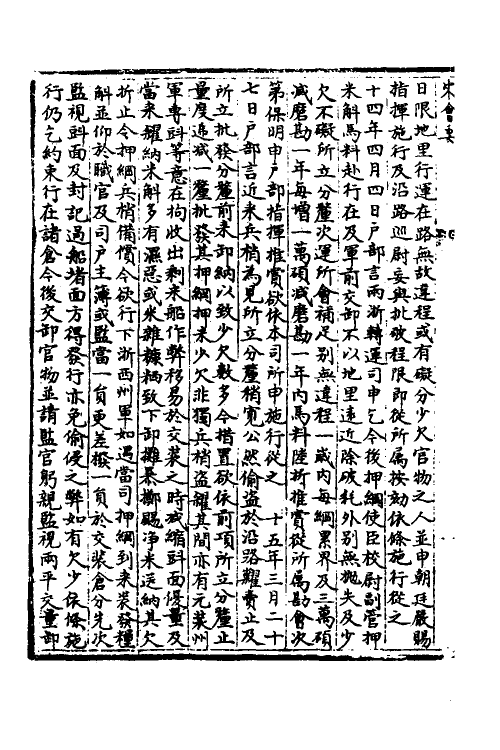 宋會要
日限地里行運在路無故違程或有礙分少欠官物之人並申朝廷嚴賜
指揮施行及沿路巡尉妄與批破程限即從所属按劾依條施行從之
十四年四月四日户部言两浙轉運司申乞今後押綱使臣校尉副管押
米斛馬料赴行在及軍前交卸不以地里遠近除破耗外别無抛失及少
欠不礙所立分釐次運所會補足别無違程一歳内每綱累界及三萬碩
减磨勘一年每增一萬碩减磨勘一年内馬料陸折推賞從所属勘會次
第保明申户部指揮推賞欲依本司所申施行從之 十五年三月二十
七日户部言近来兵梢為見所立分釐稍寛公然偷盗於沿路糶賣止及
所立批發分釐前来卸納以致少欠數多今措置欲依前項所立分釐止
量度追减一釐批發其押綱押来少欠非獨兵梢盗糶其間亦有元装州
軍專㪷等意在拘收出剩来船作弊移易於交装之時减縮㪷面優量及
當来糴納米斛多有濕惡或米雜糠粞致下卸攤暴擲颺浄米送納其欠
折止令押綱兵梢備償今欲行下浙西州軍如遇當司押綱到来装發糧
斛並仰於職官及司户主簿或監當一員更差撥一員於交装倉分先次
監視㪷面及封記過船堵面方得發行亦免偷侵之弊如有欠少依條施
行仍乞約束行在諸倉今後交卸官物並請監官躬親監視兩平交量卸